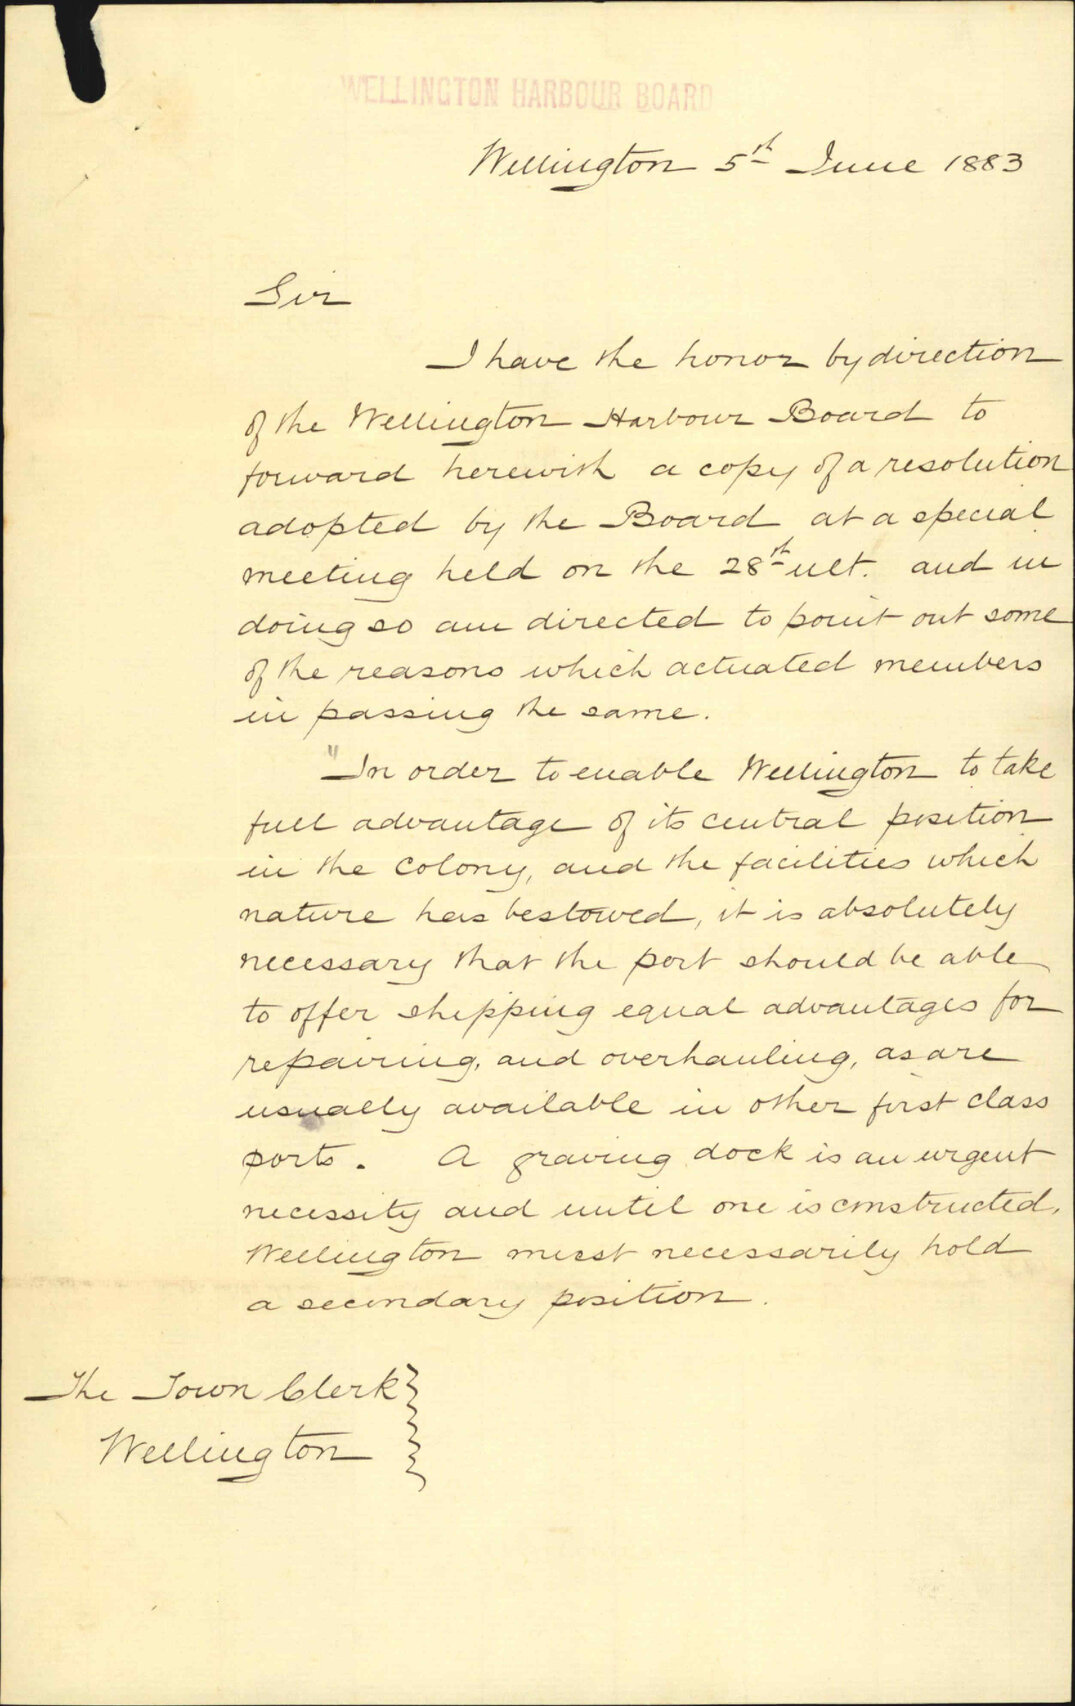 WELLINGTON HARBOUR BOARD
Wellington 5th June 1883
Sir
I have the honor by direction
of the Wellington Harbour Board to
forward herewith a copy of a resolution
adopted by the Board at a special
meeting held on the 28th ult. and in
doing so am directed to point out some
of the reasons which actuated members
in passing the same.
"In order to enable Wellington to take
full advantage of its central position
in the Colony, and the facilities which
nature has bestowed, it is absolutely
necessary that the port should be able
to offer shipping equal advantages for
repairing, and overhauling, as are
usually available in other first class
ports. A graving dock is an urgent
necessity and until one is constructed,
Wellington must necessarily hold
a secondary position.
The Town Clerk
Wellington